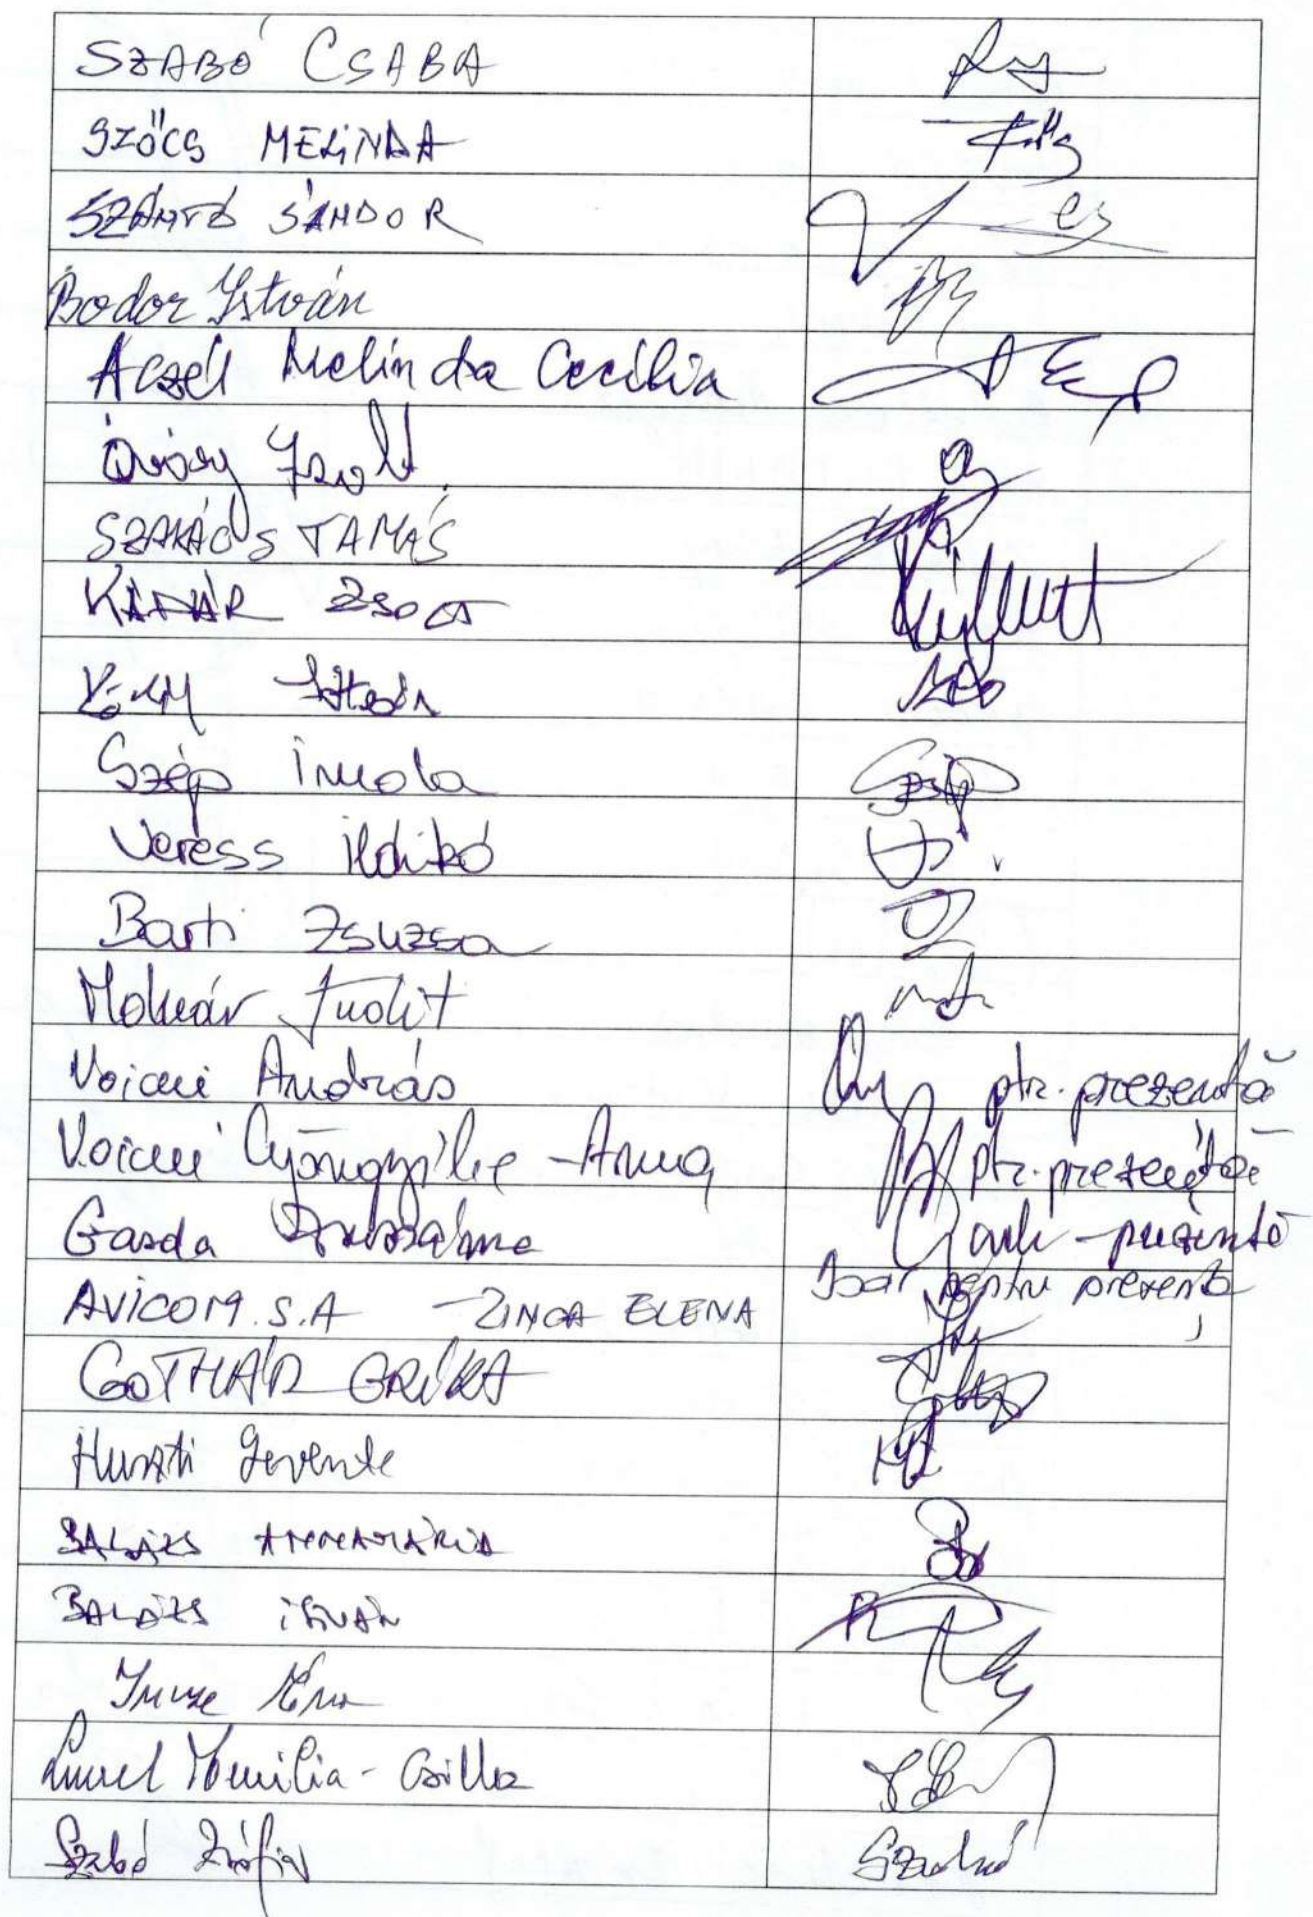 SZABÓ CSABA
SZŐCS MELINDA
SZÁNTÓ SÁNDOR
Bodor István
Aczél Melinda Cecília
Óvári Zsolt
SZAKÁCS TAMÁS
KÁDÁR ZSOLT
István
Szép Imola
Veress Ildikó
Barti Zsuzsa
Molnár Judit
Voicui András ptr. prezentă
Voicui Gyöngyike-Anna ptr. prezentă
Gazda prezentă
AVICOM S.A - ZINCA ELENA Doar pentru prezenta
GOTHÁR ERIKA
Huszti Levente
BALÁZS ANNAMÁRIA
BALÁZS ISTVÁN
Imre Éva
Emilia-Csilla
Szabó Zsófia Szabó